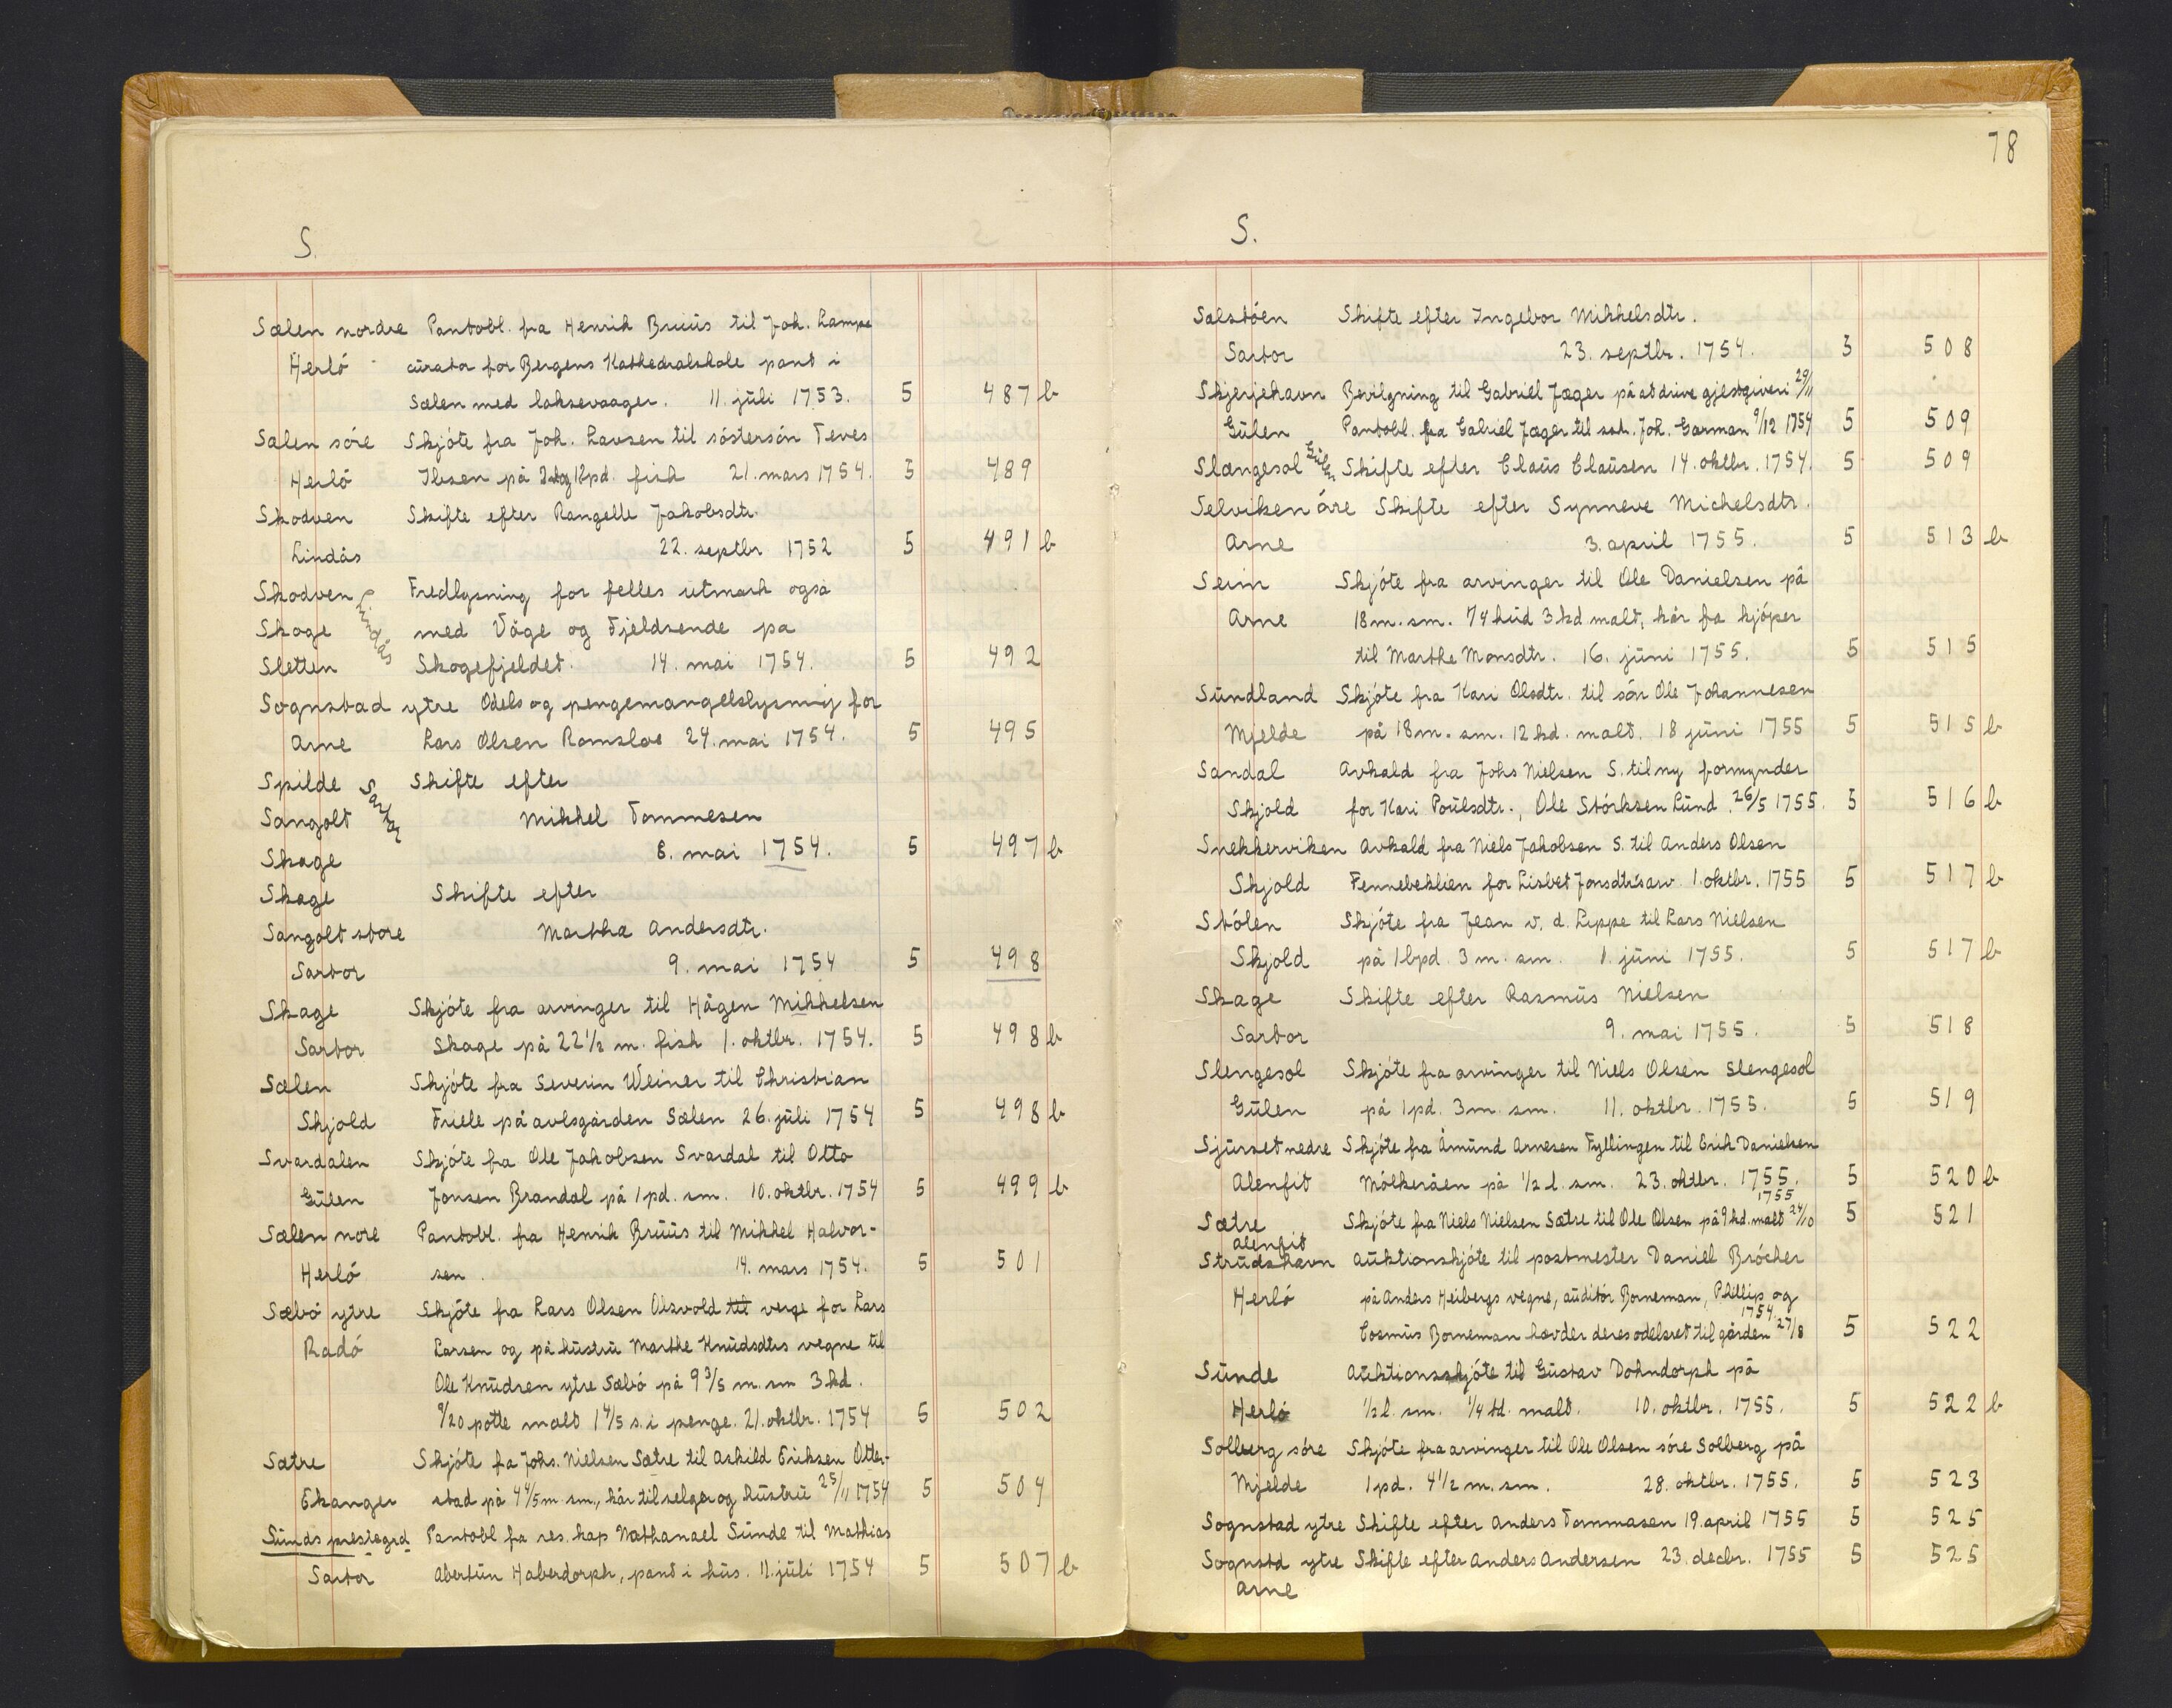 S.
Sælen nordre Pantobl. fra Henrik Brüüs til Joh. Lampe
Herlö cürator for Bergens Kathedralskole pant i
Sælen med laksevaager. 11. jüli 1753. 5 487 b
Sælen söre Skjöte fra Joh. Lavsen til söstersön Teves
Herlö Ibsen på 2 og 12pd. fisk 21. mars 1754. 5 489
Skodven Skifte efter Rangelle Jakobsdtr.
Lindås 22. septbr 1752 5 491 b
Skodven Lindås Fredlysning for felles ütmark også
Skage med Våge og Fjeldsende pa
Sletten Skogefjeldet. 14. mai 1754. 5 492
Sognstad ytre Odels og pengemangelslysning for
Arne Lars Olsen Romsloe 24. mai 1754. 5 495
Spilde Sartor Skifte efter
Sangolt Mikkel Tommesen
Skage 8. mai 1754. 5 497 b
Skage Skifte efter
Sangolt store Martha Andersdtr.
Sartor 9. mai 1754 5 498
Skage Skjöte fra arvinger til Hågen Mikkelsen
Sartor Skage på 22 1/2 m. fisk 1. oktbr. 1754. 5 498 b
Sælen Skjöte fra Severin Weiner til Christian
Skjold Friele på avlsgården Sælen 26. jüli 1754 5 498 b
Svardalen Skjöte fra Ole Jakobsen Svardal til Otto
Gülen Jonsen Brandal på 1 pd. sm. 10. oktbr. 1754 5 499 b
Sælen nore Pantobl. fra Henrik Brüüs til Mikkel Halvor-
Herlö sen. 14. mars 1754. 5 501
Sæbö ytre Skjöte fra Lars Olsen Olsvold til verge for Lars
Radö Larsen og på hüstrü Marthe Knüdsdtrs vegne til
Ole Knüdsen ytre Sæbö på 9 3/5 m. sm 3 kd.
9/20 potte malt 1 4/5 s. i penge. 21. oktbr. 1754 5 502
Sætre Skjöte fa Johs. Nielsen Sætre til Askild Eriksen Otter-
Ekanger stad på 4 4/5 m sm., kår til selger og hüstrü 25/11 1754 5 504
Sünds prestegrd Pantobl fa res. kap Nathanael Sünde til Mathias
Sartor Abertün Haberdorph, pant i hüs. 11. jüli 1754 5 507 b
78
S.
Salstöen Skifte efter Ingebor Mikkelsdtr.
Sartor 23. septbr. 1754. 5 508
Skjerjehavn Bevilgning til Gabriel Jæger på at drive gjestgiveri 29/11
Gülen Pantobl. fra Gabriel Jæger til sst. Joh. Garman 9/12 1754 5 509
Slængesol Gülen Skifte efter Claüs Claüsen 14. oktbr. 1754. 5 509
Selviken öre Skifte efter Synneve Michelsdtr.
Arne 3. april 1755. 5 513 b
Seim Skjöte fra arvinger til Ole Danielsen på
Arne 18 m. sm. 74 hüd 3 kd malt, kår fa kjöper
til Marthe Monsdtr. 16. jüni 1755. 5 515
Sündland Skjöte fra Kari Olsdtr. til sön Ole Johannesen
Mjelde på 18 m. sm. 12 kd. malt. 18 jüni 1755 5 515 b
Sandal Avkald fra Johs Nielsen S. til ny formynder
Skjold for Kari Poülsdtr., Ole Störksen Lünd. 26/5 1755. 5 516 b
Snekkerviken Avkald fra Niels Jakobsen S. til Anders Olsen
Skjold Fennebeklien for Lisbet Jonsdtrs arv. 1. oktbr. 1755 5 517 b
Stölen Skjöte fra Jean v. d. Lippe til Lars Nielsen
Skjold på 1 bpd. 3 m. sm. 1. jüni 1755. 5 517 b
Skage Skifte efter Rasmüs Nielsen
Sartor 9. mai 1755. 5 518
Slengesol Skjöte fra arvinger til Niels Olsen Slengesol
Gülen på 1 pd. 3 m. sm. 11. oktbr. 1755. 5 519
Sjürset nedre Skjöte fra Åmünd Arnesen Fyllingen til Erik Danielsen
Alenfit Mölkeråen på 1/2 l. sm. 23. oktbr. 1755. 5 520 b
Sætre Skjöte fra Niels Nielsen Sætre til Ole Olsen på 9 kd. malt 24/10 1755 5 521
Alenfit
Strüdshavn Aüktionskjöte til postmester Daniell Bröcher
Herlö på Anders Heibergs vegne, aüditör Borneman, Phillip og
Cosmüs Borneman hævder deres odelsret til gården 27/8 1754. 5 522
Sünde Aüktionsskjöte til Güstav Dohndorph på
Herlö 1/2 l. sm. 1/4 td. malt. 10. oktbr. 1755. 5 522 b
Solberg söre Skjöte fra arvinger til Ole Olsen söre Solberg på
Mjelde 1 pd. 4 1/2 m. sm. 28. oktbr. 1755. 5 523
Sognstad ytre Skifte efter Anders Tommasen 19. april 1755 5 525
Sognstd ytre Skifte efter Anders Andersen 23. decbr. 1755 5 525
Arne